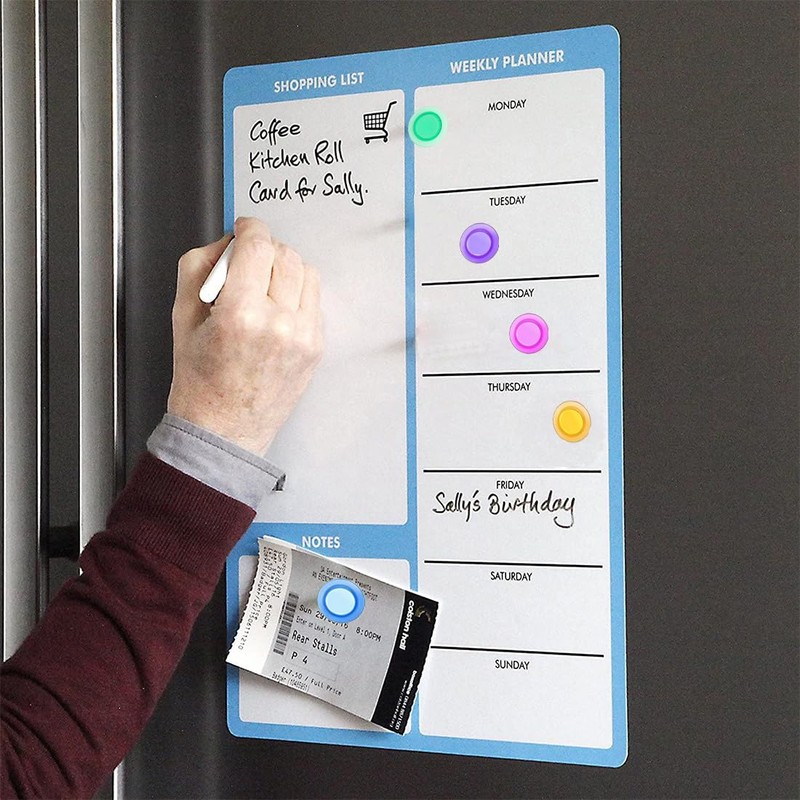 SHOPPING LIST
Coffee
Kitchen Roll
Card for Sally.
WEEKLY PLANNER
MONDAY
TUESDAY
WEDNESDAY
THURSDAY
FRIDAY
Sally's Birthday
SATURDAY
SUNDAY
NOTES
3A Entertainment Presents
8:00PM
Enter on Level 1, Door A
Rear Stalls
P 4
£47.50 / Full Price
colston hall